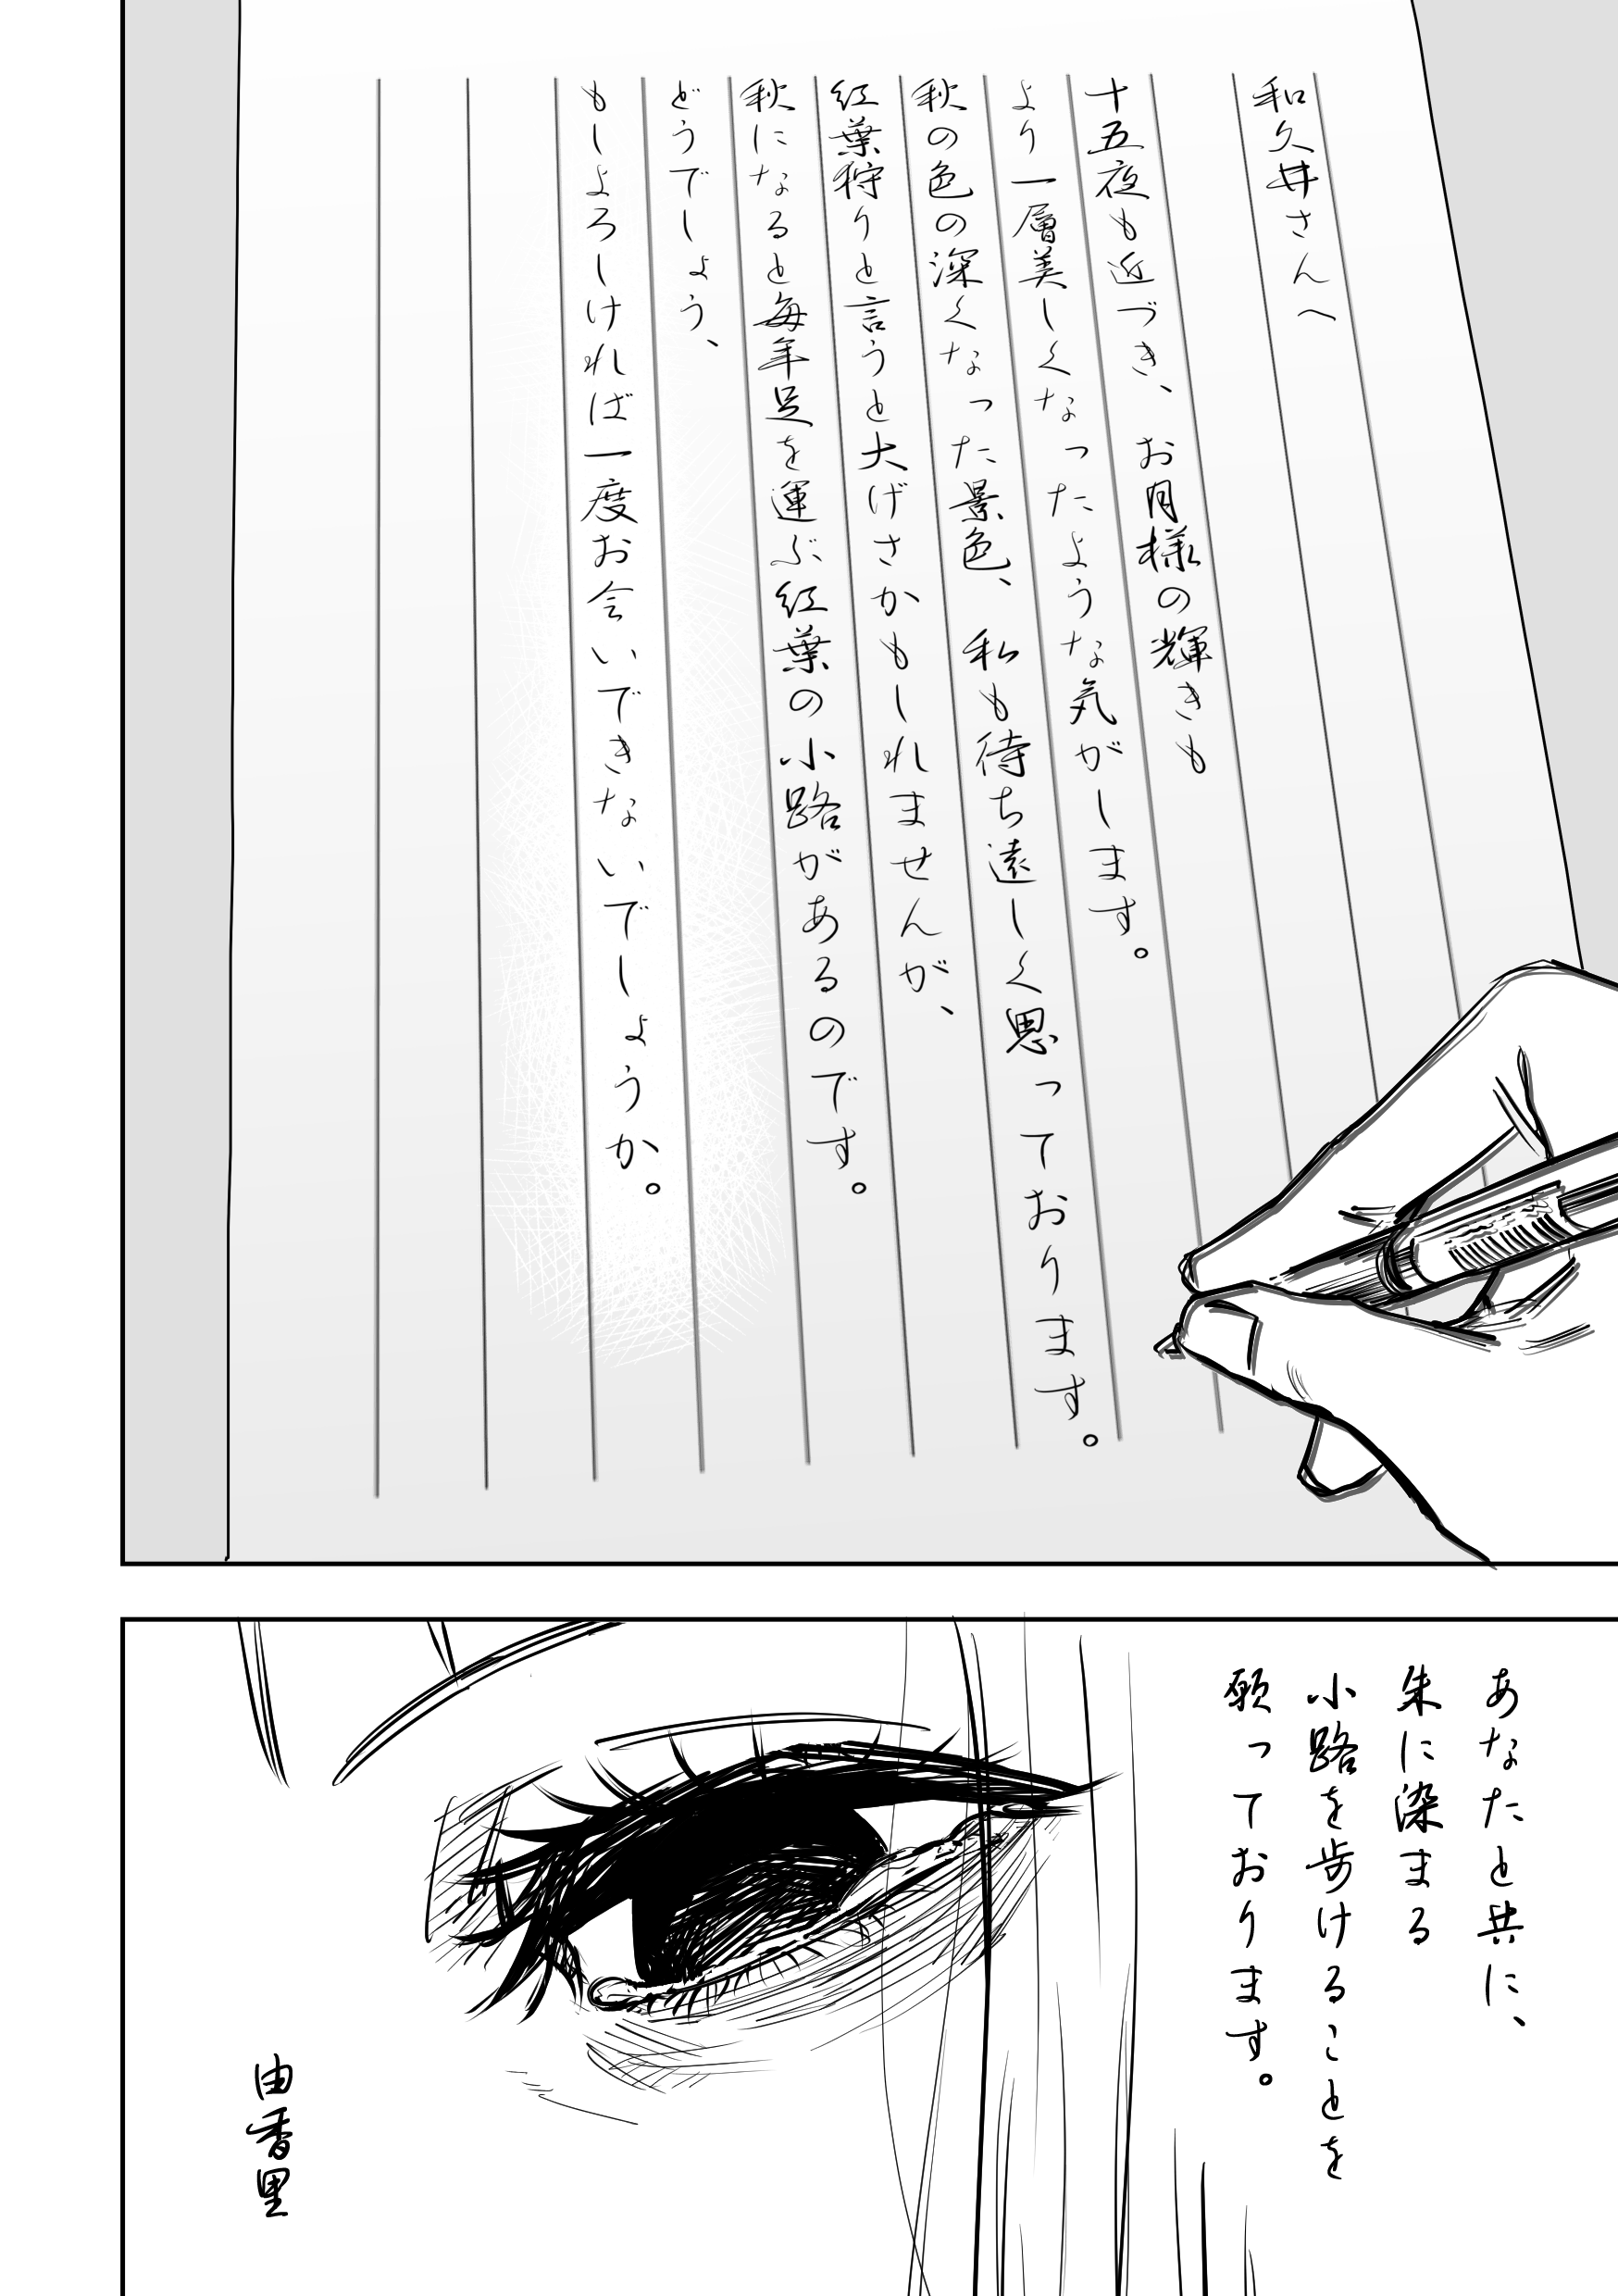 和久井さんへ
十五夜も近づき、お月様の輝きも
より一層美しくなったような気がします。
秋の色の深くなった景色、私も待ち遠しく思っております。
紅葉狩りと言うと大げさかもしれませんが、
秋になると毎年足を運ぶ紅葉の小路があるのです。
どうでしょう、
もしよろしければ一度お会いできないでしょうか。
あなたと共に、
朱に染まる
小路を歩けることを
願っております。
由香里